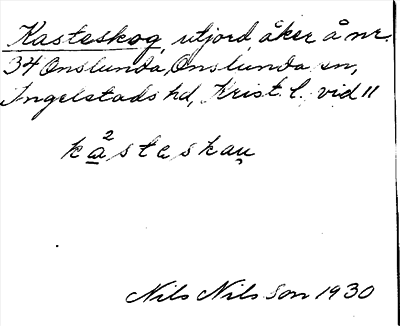 Kasteskog, utjord, åker å nr.
34 Onslunda, Onslunda sn,
Ingelstads hd, Krist. l. vid 11
ka²steskau̥
Nils Nilsson 1930